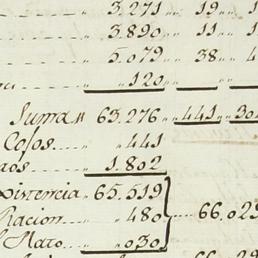 3.271 „ 19 „ 1
3.890 „ 11 „ 1
5.079 „ 38 „ 4
„ 120 „
Suma „ 63.276 „ 441 „ 304
Cojos „ 441
1.802
xistencia „ 65.519
Racion „ 480 66.029
Mato „ 030